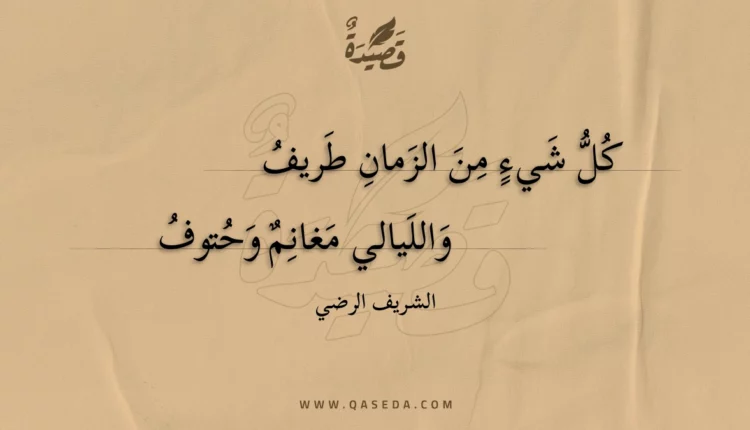 قَصِيْدَةٌ
كُلُّ شَيءٍ مِنَ الزَمانِ طَريفُ
وَاللَيالي مَغانِمٌ وَحُتوفُ
الشريف الرضي
WWW.QASEDA.COM